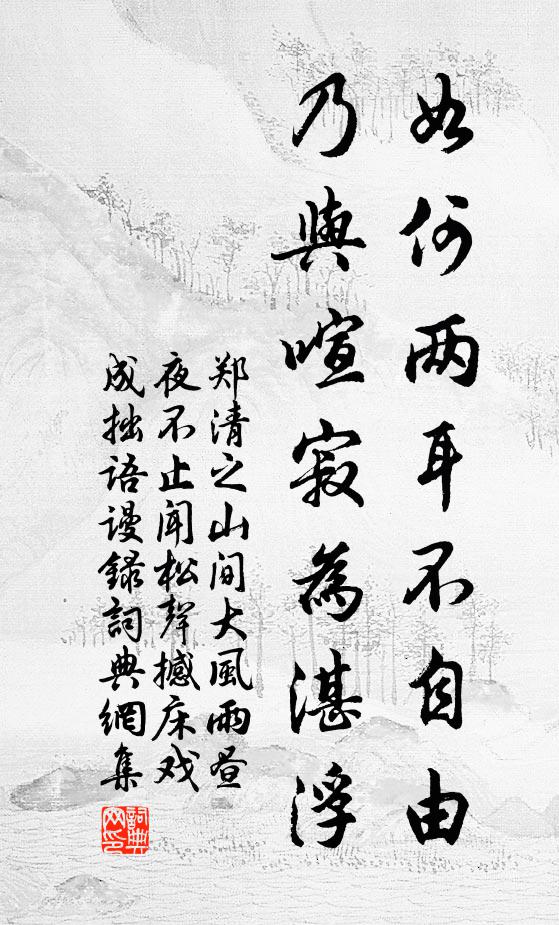 如何两耳不自由
乃與喧寂為湛浮
郑清之山间大風雨昼
夜不止闻松聲撼床戏
成拙语谩録詞典網集
詞典
网印